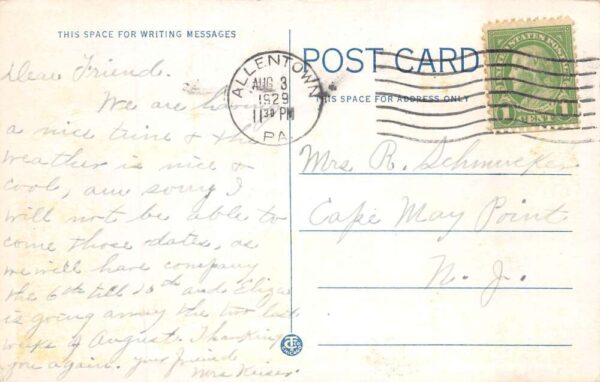 THIS SPACE FOR WRITING MESSAGES
POST CARD
THIS SPACE FOR ADDRESS ONLY
ALLENTOWN
AUG 3
1929
11 30 PM
PA.
UNITED STATES POSTAGE
1 CENT 1
Dear Friend.
We are having
a nice time & the
weather is nice &
cool, am sorry I
will not be able to
come those dates, as
we will have company
the 6th till 10th and Eliza
is going away the two last
weeks of August. Thanking
you again. your friend
Mrs Keiser.
Mrs. R. Schmucker
Cape May Point
N. J.